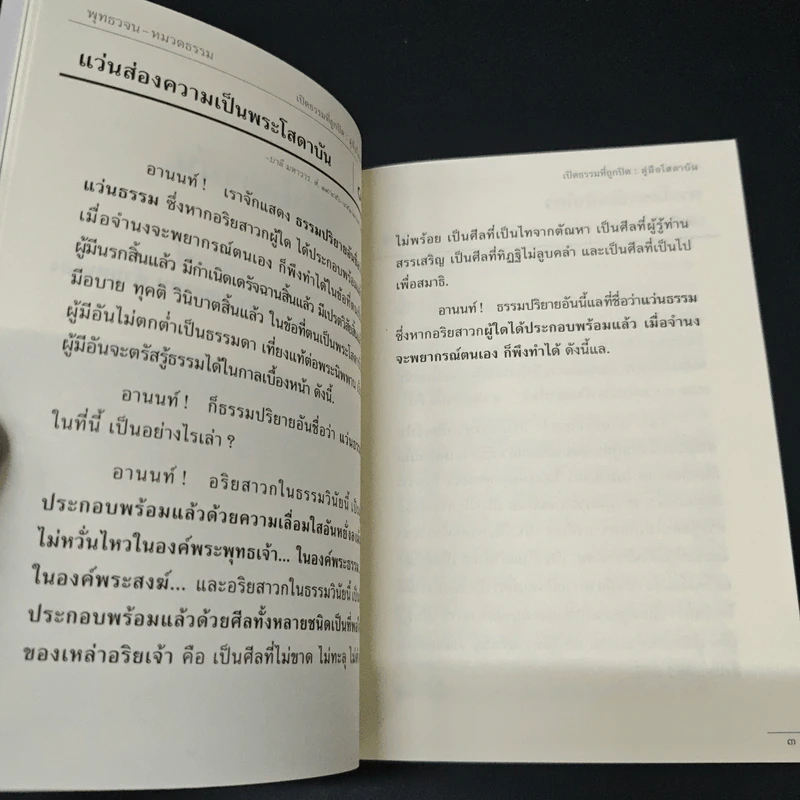 พุทธวจน - หมวดธรรม
เปิดธรรมที่ถูกปิด :
แว่นส่องความเป็นพระโสดาบัน
-บาลี มหาวาร. สํ.
อานนท์ ! เราจักแสดง ธรรมปริยายอันชื่อ
แว่นธรรม ซึ่งหากอริยสาวกผู้ใด ได้ประกอบพร้อม
เมื่อจำนงจะพยากรณ์ตนเอง ก็พึงทำได้ในข้อที่ตน
ผู้มีนรกสิ้นแล้ว มีกำเนิดเดรัจฉานสิ้นแล้ว มีเปรตวิสัยสิ้น
มีอบาย ทุคติ วินิบาตสิ้นแล้ว ในข้อที่ตนเป็นพระโสดา
ผู้มีอันไม่ตกต่ำเป็นธรรมดา เที่ยงแท้ต่อพระนิพพาน
ผู้มีอันจะตรัสรู้ธรรมได้ในกาลเบื้องหน้า ดังนี้.
อานนท์ ! ก็ธรรมปริยายอันชื่อว่า แว่นธรรม
ในที่นี้ เป็นอย่างไรเล่า ?
อานนท์ ! อริยสาวกในธรรมวินัยนี้
ประกอบพร้อมแล้วด้วยความเลื่อมใสอันหยั่งลง
ไม่หวั่นไหวในองค์พระพุทธเจ้า... ในองค์พระธรรม
ในองค์พระสงฆ์... และอริยสาวกในธรรมวินัยนี้
ประกอบพร้อมแล้วด้วยศีลทั้งหลายชนิดเป็นที่พอ
ของเหล่าอริยเจ้า คือ เป็นศีลที่ไม่ขาด ไม่ทะลุ
เปิดธรรมที่ถูกปิด : คู่มือโสดาบัน
ไม่พร้อย เป็นศีลที่เป็นไทจากตัณหา เป็นศีลที่ผู้รู้ท่าน
สรรเสริญ เป็นศีลที่ทิฏฐิไม่ลูบคลำ และเป็นศีลที่เป็นไป
เพื่อสมาธิ.
อานนท์ ! ธรรมปริยายอันนี้แลที่ชื่อว่าแว่นธรรม
ซึ่งหากอริยสาวกผู้ใดได้ประกอบพร้อมแล้ว เมื่อจำนง
จะพยากรณ์ตนเอง ก็พึงทำได้ ดังนี้แล.
๓